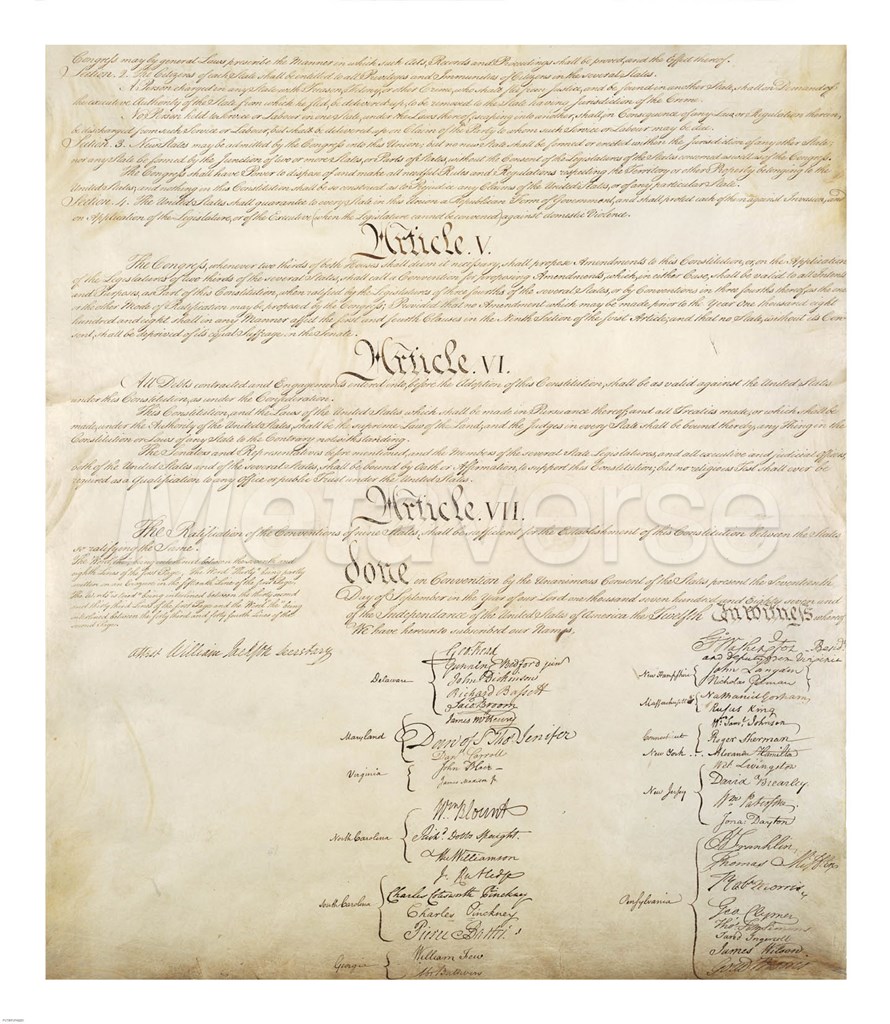 Congress may by general Laws prescribe the Manner in which such Acts, Records and Proceedings shall be proved, and the Effect thereof.
Section. 2. The Citizens of each State shall be entitled to all Privileges and Immunities of Citizens in the several States.
A Person charged in any State with Treason, Felony, or other Crime, who shall flee from Justice, and be found in another State, shall on Demand of
the executive Authority of the State from which he fled, be delivered up, to be removed to the State having Jurisdiction of the Crime.
No Person held to Service or Labour in one State, under the Laws thereof, escaping into another, shall, in Consequence of any Law or Regulation therein,
be discharged from such Service or Labour, but shall be delivered up on Claim of the Party to whom such Service or Labour may be due.
Section. 3. New States may be admitted by the Congress into this Union; but no new State shall be formed or erected within the Jurisdiction of any other State;
nor any State be formed by the Junction of two or more States, or Parts of States, without the Consent of the Legislatures of the States concerned as well as of the Congress.
The Congress shall have Power to dispose of and make all needful Rules and Regulations respecting the Territory or other Property belonging to the
United States; and nothing in this Constitution shall be so construed as to Prejudice any Claims of the United States, or of any particular State.
Section. 4. The United States shall guarantee to every State in this Union a Republican Form of Government, and shall protect each of them against Invasion; and
on Application of the Legislature, or of the Executive (when the Legislature cannot be convened) against domestic Violence.
Article. V.
The Congress, whenever two thirds of both Houses shall deem it necessary, shall propose Amendments to this Constitution, or, on the Application
of the Legislatures of two thirds of the several States, shall call a Convention for proposing Amendments, which, in either Case, shall be valid to all Intents
and Purposes, as Part of this Constitution, when ratified by the Legislatures of three fourths of the several States, or by Conventions in three fourths thereof, as the one
or the other Mode of Ratification may be proposed by the Congress; Provided that no Amendment which may be made prior to the Year One thousand eight
hundred and eight shall in any Manner affect the first and fourth Clauses in the Ninth Section of the first Article; and that no State, without its Con-
sent, shall be deprived of its equal Suffrage in the Senate.
Article. VI.
All Debts contracted and Engagements entered into, before the Adoption of this Constitution, shall be as valid against the United States
under this Constitution, as under the Confederation.
This Constitution, and the Laws of the United States which shall be made in Pursuance thereof; and all Treaties made, or which shall be
made, under the Authority of the United States, shall be the supreme Law of the Land; and the Judges in every State shall be bound thereby, any Thing in the
Constitution or Laws of any State to the Contrary notwithstanding.
The Senators and Representatives before mentioned, and the Members of the several State Legislatures, and all executive and judicial Officers,
both of the United States and of the several States, shall be bound by Oath or Affirmation, to support this Constitution; but no religious Test shall ever be
required as a Qualification to any Office or public Trust under the United States.
Article. VII.
The Ratification of the Conventions of nine States, shall be sufficient for the Establishment of this Constitution between the States
so ratifying the Same.
Metaverse
The Word, "the," being interlined between the seventh and
eighth Lines of the first Page, The Word "Thirty" being partly
written on an Erazure in the fifteenth Line of the first Page,
The Words "is tried" being interlined between the thirty second
and thirty third Lines of the first Page and the Word "the" being
interlined between the forty third and forty fourth Lines of the
second Page.
Attest William Jackson Secretary
done in Convention by the Unanimous Consent of the States present the Seventeenth
Day of September in the Year of our Lord one thousand seven hundred and Eighty seven and
of the Independance of the United States of America the Twelfth In Witness whereof
We have hereunto subscribed our Names,
Delaware
Geo: Read
Gunning Bedford jun
John Dickinson
Richard Bassett
Jaco: Broom
Maryland
James McHenry
Dan of St Thos Jenifer
Danl Carroll
Virginia
John Blair –
James Madison Jr
North Carolina
Wm Blount
Richd Dobbs Spaight.
Hu Williamson
South Carolina
J. Rutledge
Charles Cotesworth Pinckney
Charles Pinckney
Pierce Butler
Georgia
William Few
Abr Baldwin
Go Washington Presidt
and deputy from Virginia
New Hampshire
John Langdon
Nicholas Gilman
Massachusetts
Nathaniel Gorham
Rufus King
Connecticut
Wm Saml Johnson
Roger Sherman
New York
Alexander Hamilton
New Jersey
Wil Livingston
David Brearley
Wm Paterson
Jona: Dayton
Pensylvania
B Franklin
Thomas Mifflin
Robt Morris
Geo. Clymer
Thos FitzSimons
Jared Ingersoll
James Wilson
Gouv Morris